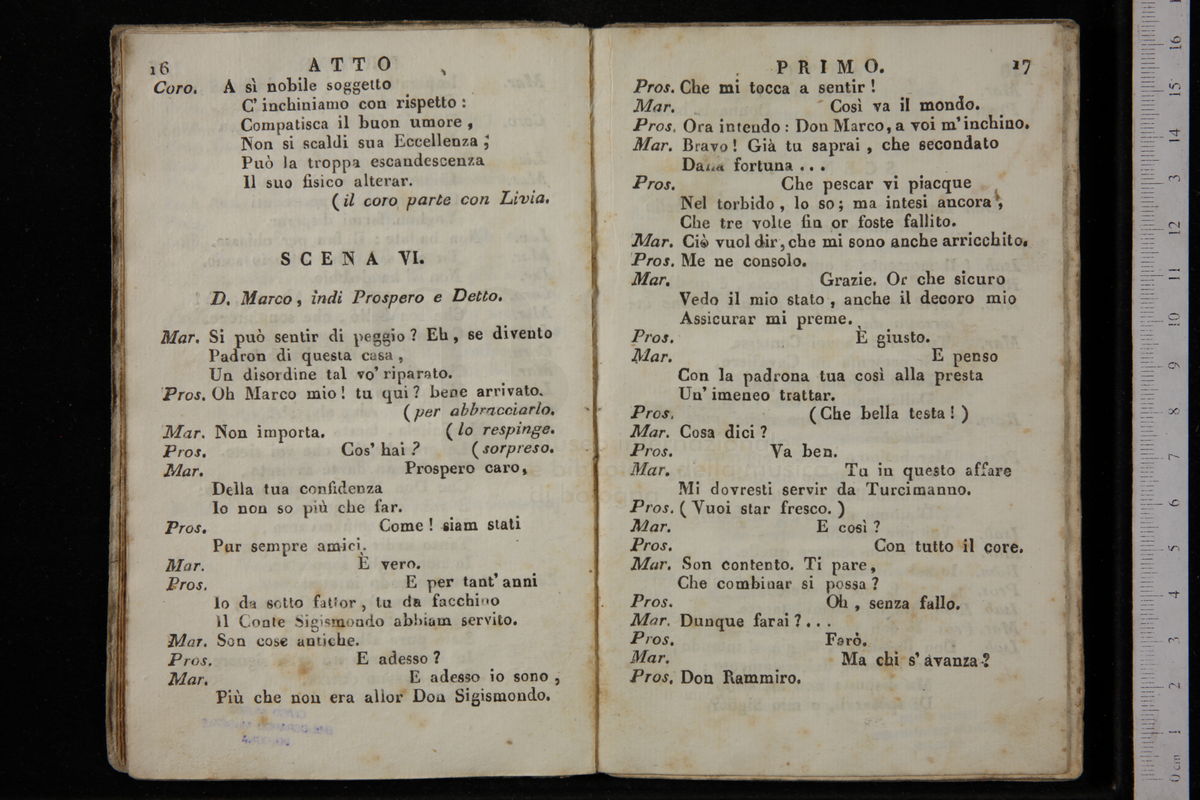 16 ATTO
Coro. A sì nobile soggetto
C' inchiniamo con rispetto :
Compatisca il buon umore ,
Non si scaldi sua Eccellenza ;
Può la troppa escandescenza
Il suo fisico alterar.
( il coro parte con Livia.
SCENA VI.
D. Marco , indi Prospero e Detto.
Mar. Si può sentir di peggio ? Eh , se divento
Padron di questa casa ,
Un disordine tal vo' riparato.
Pros. Oh Marco mio ! tu qui ? bene arrivato.
( per abbracciarlo.
Mar. Non importa. ( lo respinge.
Pros. Cos' hai ? ( sorpreso.
Mar. Prospero caro ,
Della tua confidenza
Io non so più che far.
Pros. Come ! siam stati
Pur sempre amici.
Mar. È vero.
Pros. E per tant' anni
Io da sotto fattor , tu da facchino
Il Conte Sigismondo abbiam servito.
Mar. Son cose antiche.
Pros. E adesso ?
Mar. E adesso io sono ,
Più che non era allor Don Sigismondo.
PRIMO. 17
Pros. Che mi tocca a sentir !
Mar. Così va il mondo.
Pros. Ora intendo : Don Marco, a voi m' inchino.
Mar. Bravo ! Già tu saprai , che secondato
Dalla fortuna . . .
Pros. Che pescar vi piacque
Nel torbido , lo so ; ma intesi ancora ,
Che tre volte fin or foste fallito.
Mar. Ciò vuol dir, che mi sono anche arricchito.
Pros. Me ne consolo.
Mar. Grazie. Or che sicuro
Vedo il mio stato , anche il decoro mio
Assicurar mi preme.
Pros. È giusto.
Mar. E penso
Con la padrona tua così alla presta
Un' imeneo trattar.
Pros. ( Che bella testa ! )
Mar. Cosa dici ?
Pros. Va ben.
Mar. Tu in questo affare
Mi dovresti servir da Turcimanno.
Pros. ( Vuoi star fresco. )
Mar. E così ?
Pros. Con tutto il core.
Mar. Son contento. Ti pare ,
Che combinar si possa ?
Pros. Oh , senza fallo.
Mar. Dunque farai ? . . .
Pros. Farò.
Mar. Ma chi s' avanza ?
Pros. Don Rammiro.